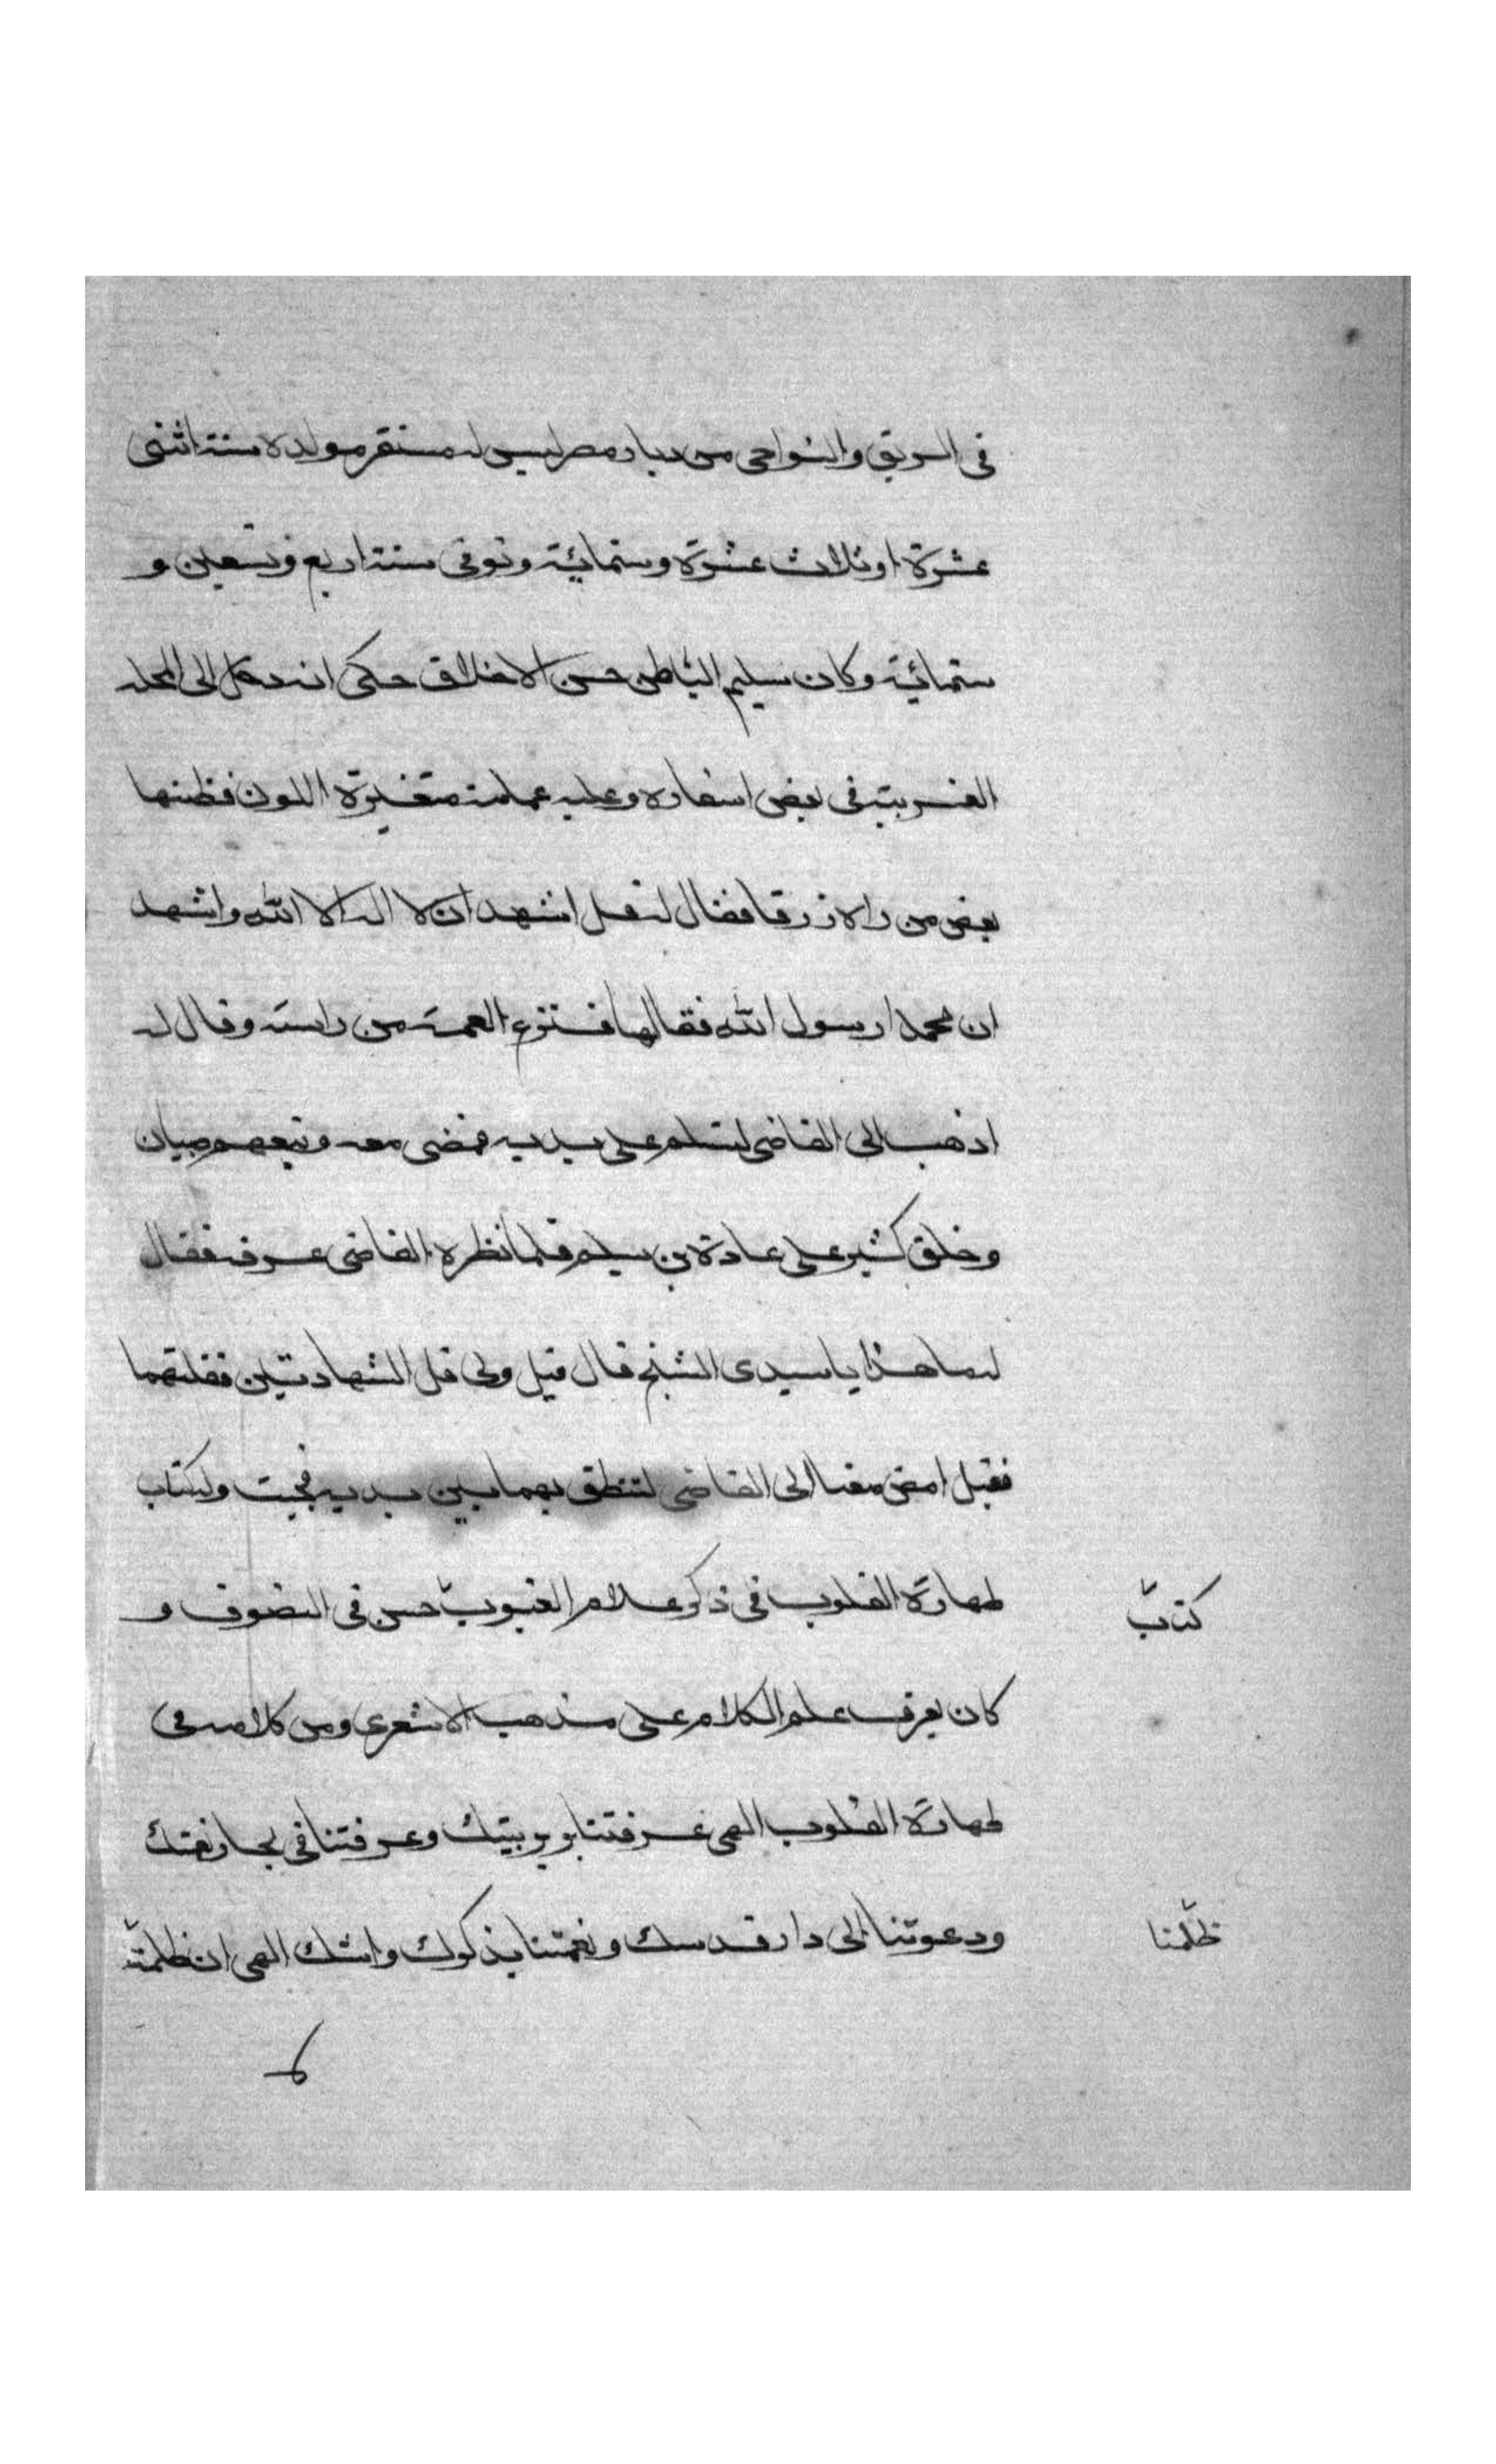 في الريف والنواحي من ديار مصر ليس له مستقر مولده سنة اثنتي
عشرة او ثلاث عشرة وستمائة وتوفي سنة اربع وتسعين و
ستمائة وكان سليم الباطن حسن الاخلاق حكى انه دخل الى المحلة
الغربية في بعض اسفاره وعليه عمامة متغيرة اللون فظنها
بعض من راه زرقا فقال له قل اشهد ان لا اله الا الله واشهد
ان محمدا رسول الله فقالها فنزع العمة من راسه وقال له
اذهب الى القاضي لتسلم على يديه فمضى معه وتبعهم صبيان
وخلق كثير على عادة من يسلم فلما نظره القاضي عرفه فقال
له ما هذا يا سيدي الشيخ قال قيل لي قل الشهادتين فقلتهما
فقيل امض معنا الى القاضي لتنطق بهما بين يديه فجيت وله كتاب
طهارة القلوب في ذكر علام الغيوب حسن في التصوف و
كتاب
كان يعرف علم الكلام على مذهب الاشعري ومن كلامه في
طهارة القلوب الهي عرفتنا بربوبيتك وغرقتنا في بحار نعمتك
ودعوتنا الى دار قدسك ونعمتنا بذكرك وانسك الهي ان ظلمة
ظلمنا